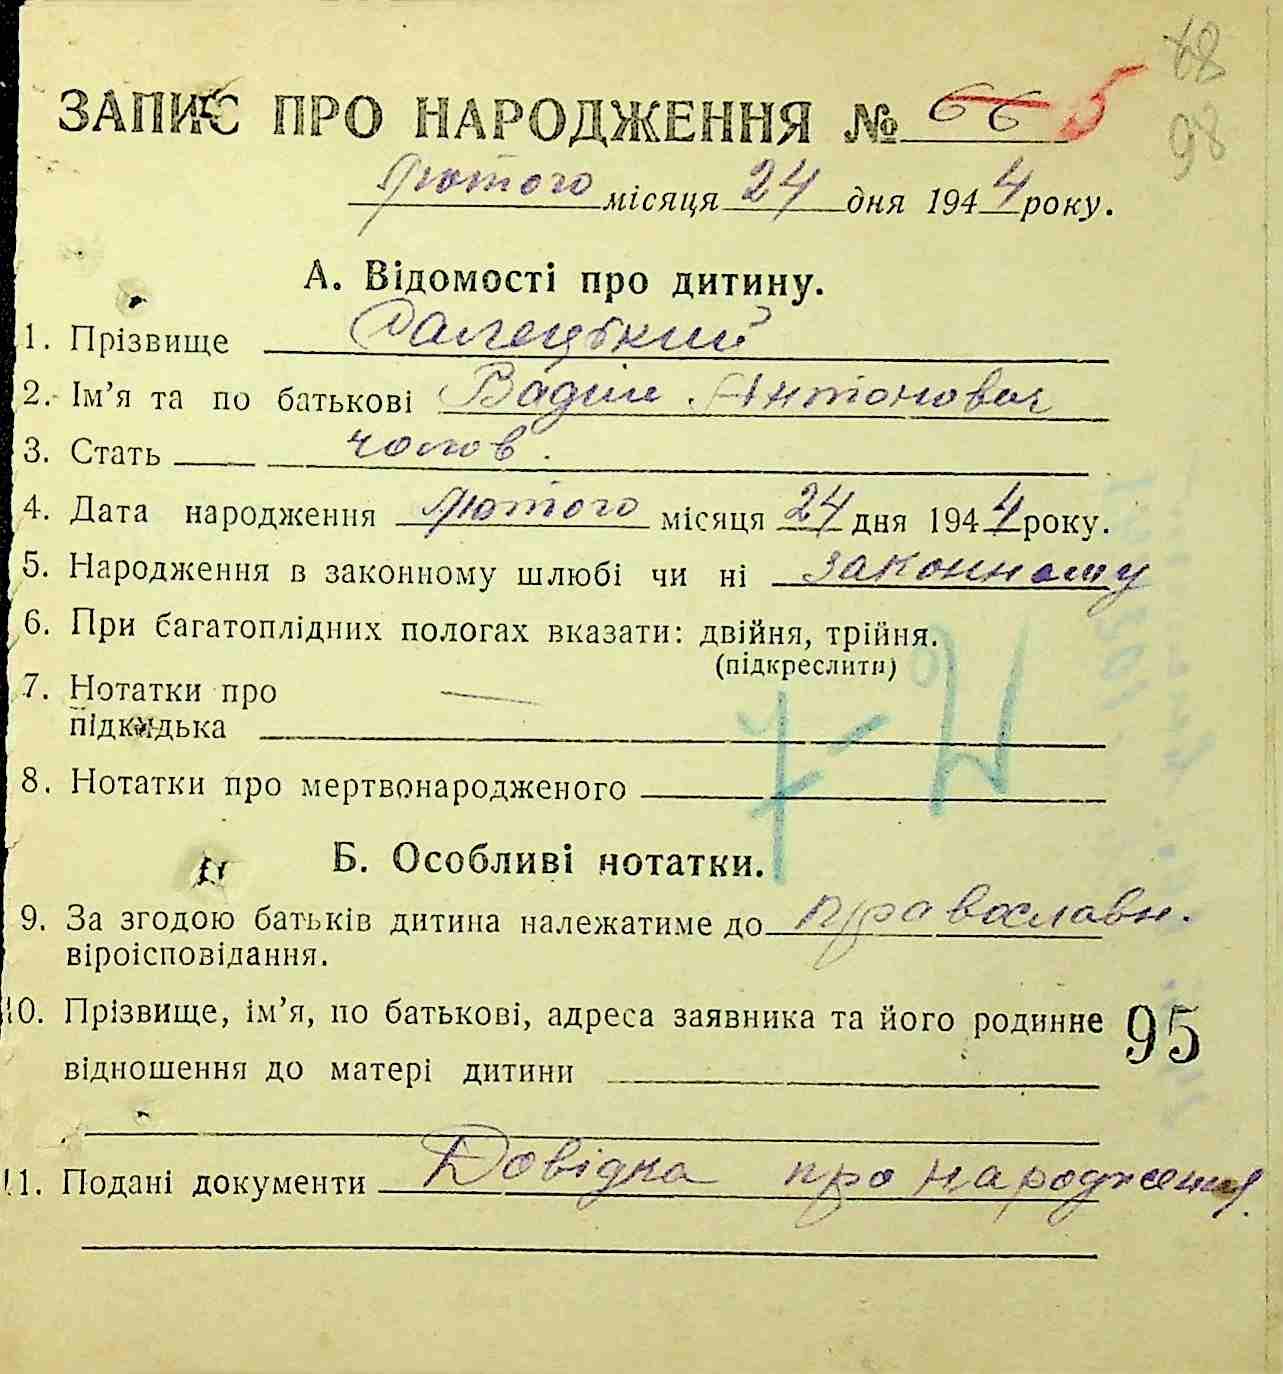 68
98
ЗАПИС ПРО НАРОДЖЕННЯ № 66 5
Лютого місяця 24 дня 1944 року.
А. Відомості про дитину.
1. Прізвище Галецький
2. Ім’я та по батькові Вадим Антонович
3. Стать чолов.
4. Дата народження Лютого місяця 24 дня 1944 року.
5. Народження в законному шлюбі чи ні законному
6. При багатоплідних пологах вказати: двійня, трійня.
(підкреслити)
7. Нотатки про —
підкидька
8. Нотатки про мертвонародженого
Б. Особливі нотатки.
9. За згодою батьків дитина належатиме до православн.
віроісповідання.
10. Прізвище, ім’я, по батькові, адреса заявника та його родинне
відношення до матері дитини
95
11. Подані документи Довідка про народження.